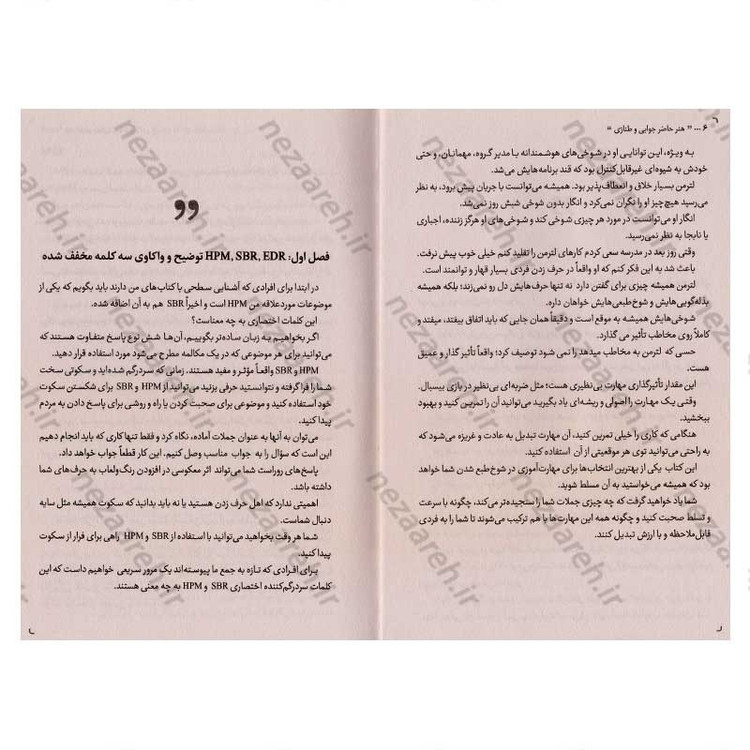 ۶ ... " هنر حاضر جوابی و طنازی "
به ویژه، این توانایی او در شوخی‌های هوشمندانه با مدیر گروه، مهمانان، و حتی
خودش به شیوه‌ای غیرقابل‌کنترل بود که قند برنامه‌هایش می‌شد.
لترمن بسیار خلاق و انعطاف‌پذیر بود. همیشه می‌توانست با جریان پیش برود، به نظر
می‌رسید هیچ‌چیز او را نگران نمی‌کرد و انگار بدون شوخی شبش روز نمی‌شد.
انگار او می‌توانست در مورد هر چیزی شوخی کند و شوخی‌های او هرگز زننده، اجباری
یا نابجا به نظر نمی‌رسید.
وقتی روز بعد در مدرسه سعی کردم کارهای لترمن را تقلید کنم خیلی خوب پیش نرفت.
باعث شد به این فکر کنم که او واقعاً در حرف زدن فردی بسیار قهار و توانمند است.
لترمن همیشه چیزی برای گفتن دارد نه تنها حرف‌هایش دل رو نمی‌زند؛ بلکه همیشه
بذله‌گویی‌هایش و شوخ‌طبعی‌هایش خواهان داره.
شوخی‌هایش همیشه به موقع است و دقیقاً همان جایی که باید اتفاق بیفتد، میفتد و
کاملاً روی مخاطب تأثیر می گذارد.
حسی که لترمن به مخاطب میدهد را نمی شود توصیف کرد؛ واقعاً تأثیر گذار و عمیق
هست.
این مقدار تأثیرگذاری مهارت بی‌نظیری هست؛ مثل ضربه‌ای بی‌نظیر در بازی بیسبال.
وقتی یک مهارت را اصولی و ریشه‌ای یاد بگیرید می‌توانید آن را تمرین کنید و بهبود
ببخشید.
هنگامی که کاری را خیلی تمرین کنید، آن مهارت تبدیل به عادت و غریزه می‌شود که
به راحتی می‌توانید توی هر موقعیتی از آن استفاده کنید.
این کتاب یکی از بهترین انتخاب‌ها برای مهارت‌آموزی در شوخ‌طبع شدن شما خواهد
بود که همیشه می‌خواستید به آن مسلط شوید.
شما یاد خواهید گرفت که چه چیزی جملات شما را سنجیده‌تر می‌کند، چگونه با سرعت
و تسلط صحبت کنید و چگونه همه این مهارت‌ها با هم ترکیب می‌شوند تا شما را به فردی
قابل‌ملاحظه و با ارزش تبدیل کنند.
"
فصل اول: HPM, SBR, EDR توضیح و واکاوی سه کلمه مخفف شده
در ابتدا برای افرادی که آشنایی سطحی با کتاب‌های من دارند باید بگویم که یکی از
موضوعات موردعلاقه من HPM است و اخیراً SBR هم به آن اضافه شده.
این کلمات اختصاری به چه معناست؟
اگر بخواهیم به زبان ساده‌تر بگوییم، آن‌ها شش نوع پاسخ متفاوت هستند که
می‌توانید برای هر موضوعی که در یک مکالمه مطرح می‌شود مورد استفاده قرار دهید.
HPM و SBR واقعاً مؤثر و مفید هستند. زمانی که سردرگم شده‌اید و سکوتی سخت
شما را فرا گرفته و نتوانستید حرفی بزنید می‌توانید از HPM و SBR برای شکستن سکوت
خود استفاده کنید و موضوعی برای صحبت کردن یا راه و روشی برای پاسخ دادن به مردم
پیدا کنید.
می‌توان به آنها به عنوان جملات آماده، نگاه کرد و فقط تنها کاری که باید انجام دهیم
این است که سؤال را به جواب مناسب وصل کنیم. این کار قطعاً جواب خواهد داد.
پاسخ‌های روراست شما می‌تواند اثر معکوسی در افزودن رنگ‌ولعاب به حرف‌های شما
داشته باشد.
اهمیتی ندارد که اهل حرف زدن هستید یا نه باید بدانید که سکوت همیشه مثل سایه
دنبال شماست.
شما هر وقت بخواهید می‌توانید با استفاده از SBR و HPM راهی برای فرار از سکوت
پیدا کنید.
برای افرادی که تازه به جمع ما پیوسته‌اند یک مرور سریعی خواهیم داشت که این
کلمات سردرگم‌کننده اختصاری SBR و HPM به چه معنی هستند.
nezaareh.ir
nezaareh.ir
nezaareh.ir
nezaareh.ir
nezaareh.ir
nezaareh.ir